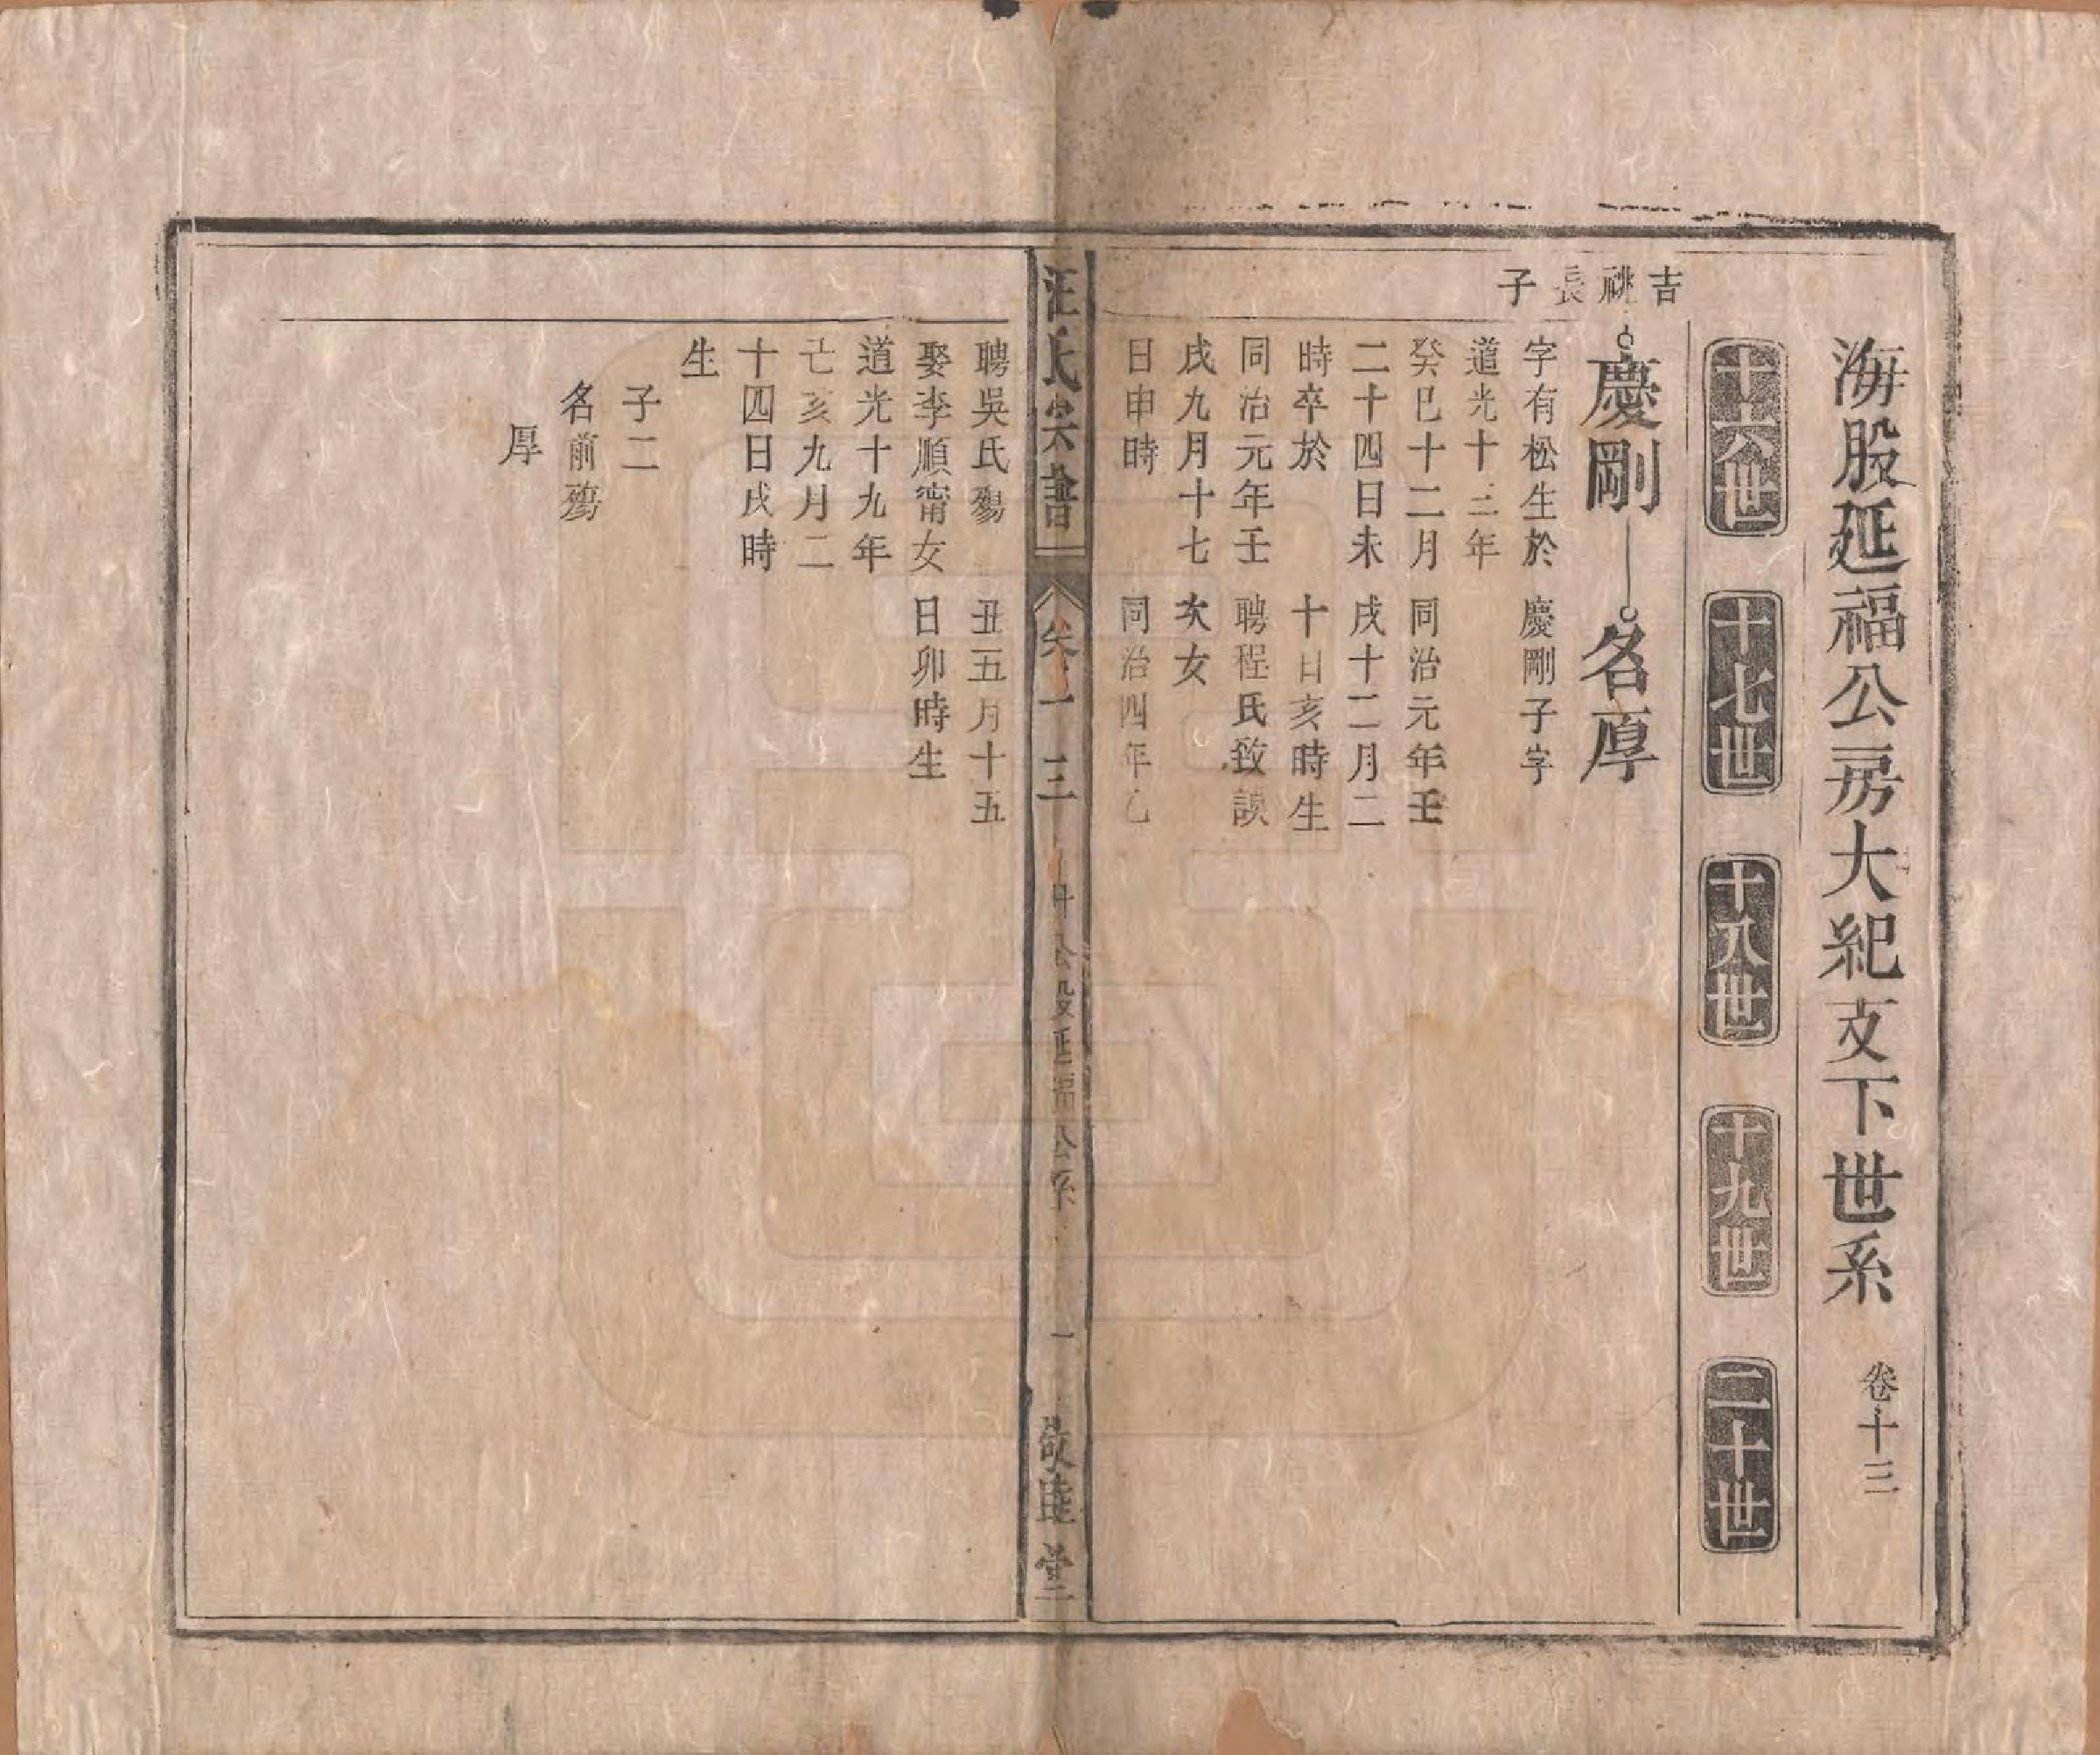 海股延福公房大紀支下世系 卷十三
十六世 十七世 十八世 十九世 二十世
吉祧長子
慶剛 名厚
字有松生於
道光十三年
癸巳十二月
二十四日未
時卒於
同治元年壬
戌九月十七
日申時
聘吳氏殤
娶李順甯女
道光十九年
亡亥九月二
十四日戌時
生
子二
名前殤
厚
慶剛子字
同治元年壬
戌十二月二
十日亥時生
聘程氏致談
次女
同治四年乙
丑五月十五
日卯時生
汪氏宗譜 卷十三 股延福公系 一 敬睦堂